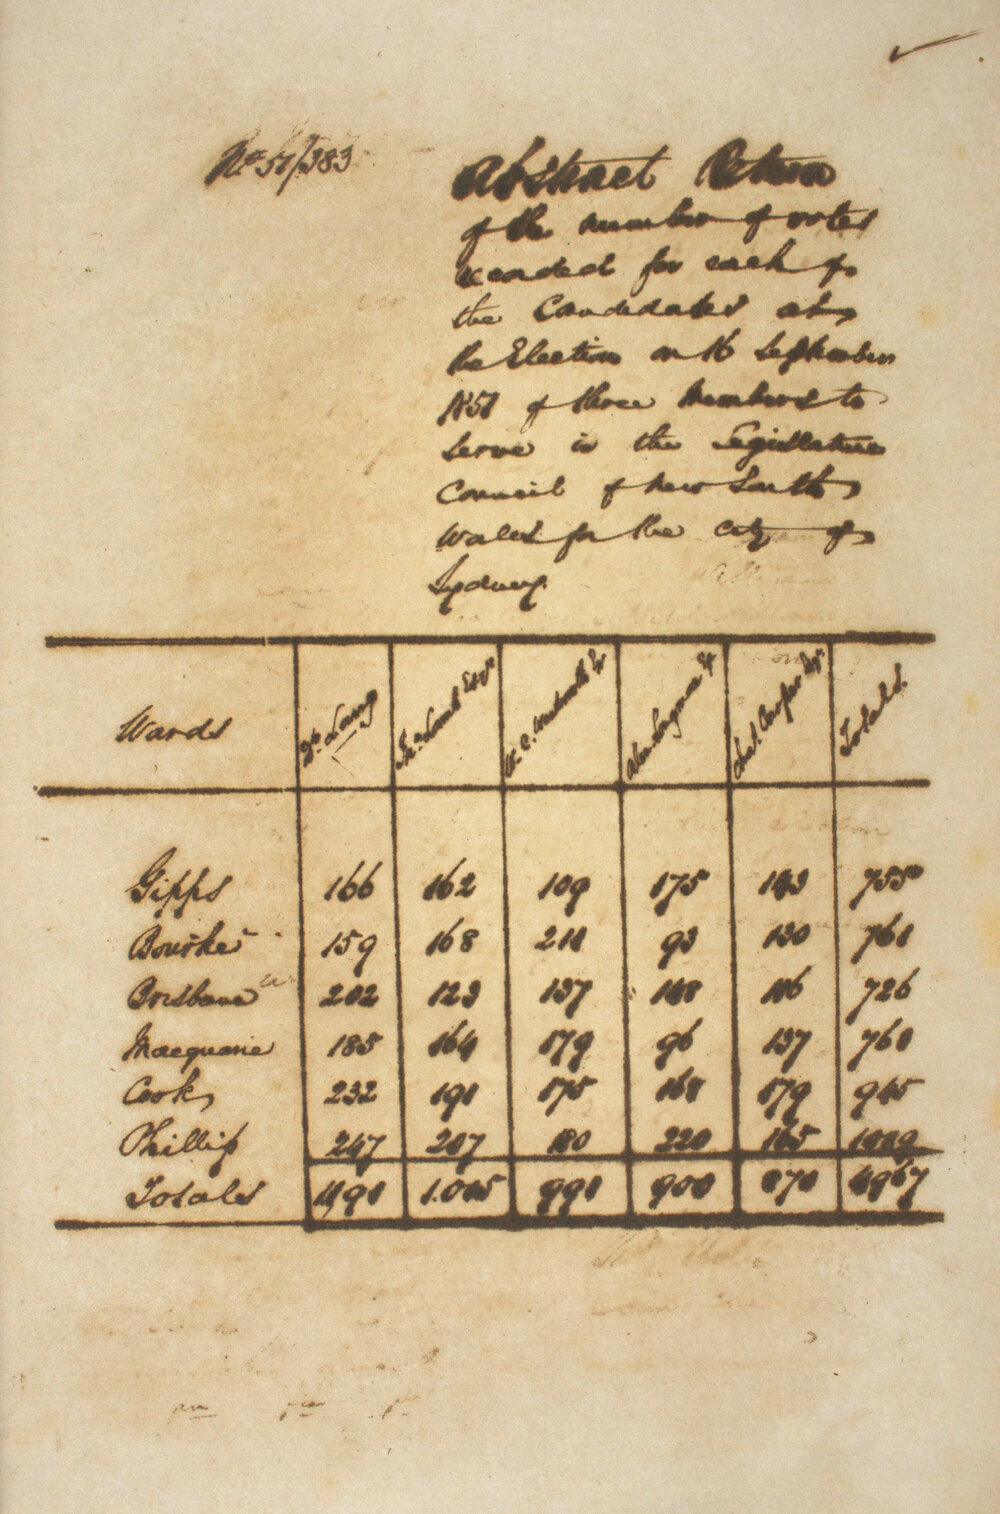 No 51/383
Abstract Return
of the number of votes
recorded for each of
the Candidates at
the Election on 16 September
1851 of three Members to
serve in the Legislative
Council of New South
Wales for the city of
Sydney
Wards Dr Lang Jno Lamb Esqr W. C. Wentworth Er Alexr Longmore Er Chas. Cowper Esqr. Totals.
Gipps 166 162 109 175 143 755
Bourke 159 168 211 93 130 761
Brisbane 202 123 137 148 116 726
Macquarie 185 164 179 96 137 761
Cook 232 191 175 168 179 945
Phillip 247 207 180 220 165 1019
Totals 1,191 1.015 991 900 870 4967